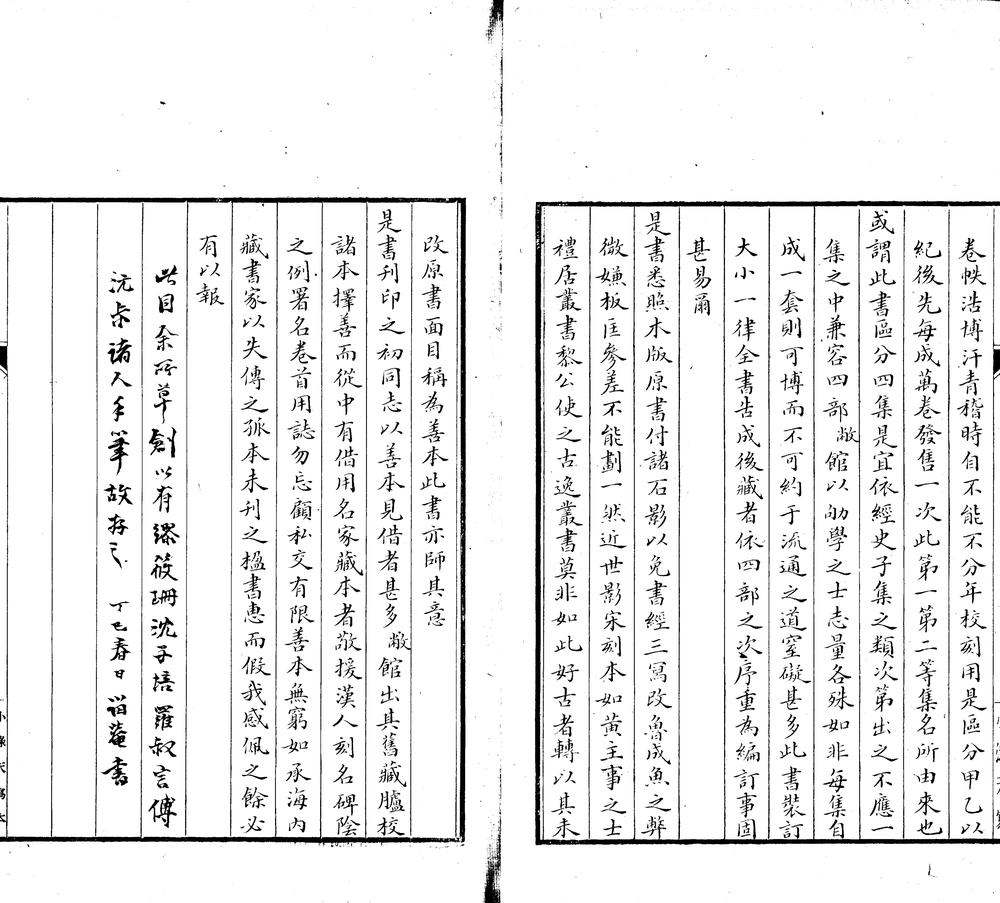 卷帙浩博汗青稽時自不能不分年校刻用是區分甲乙以
紀後先每成萬卷發售一次此第一第二等集名所由來也
或謂此書區分四集是宜依經史子集之類次第出之不應一
集之中兼容四部敝館以劬學之士志量各殊如非每集自
成一套則可博而不可約于流通之道窒礙甚多此書裝訂
大小一律全書告成後藏者依四部之次序重為編訂事固
甚易爾
是書悉照木版原書付諸石影以免書經三寫改魯成魚之弊
微嫌板匡參差不能劃一然近世影宋刻本如黃主事之士
禮居叢書黎公使之古逸叢書莫非如此好古者轉以其未
改原書面目稱為善本此書亦師其意
是書刊印之初同志以善本見借者甚多敝館出其舊藏臚校
諸本擇善而從中有借用名家藏本者敬援漢人刻名碑陰
之例署名卷首用誌勿忘顧私交有限善本無窮如承海內
藏書家以失傳之孤本未刊之楹書惠而假我感佩之餘必
有以報
此目余所草創以有繆筱珊沈子培羅叔言傅
沅叔諸人手筆故存之 丁巳春日 㽞菴書